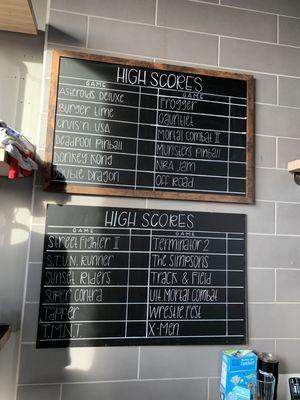 HIGH SCORES
GAME GAME
Asteroids Deluxe Frogger
Burger Time Gauntlet
Cruis'n USA Mortal Combat II
Deadpool Pinball Munsters Pinball
Donkey Kong NBA Jam
Double Dragon Off Road
HIGH SCORES
GAME GAME
Street Fighter II Terminator 2
S.T.U.N. Runner The Simpsons
Sunset Riders Track & Field
Super Contra Ult Mortal Combat
Tapper Wrestle Fest
T.M.N.T. X-Men